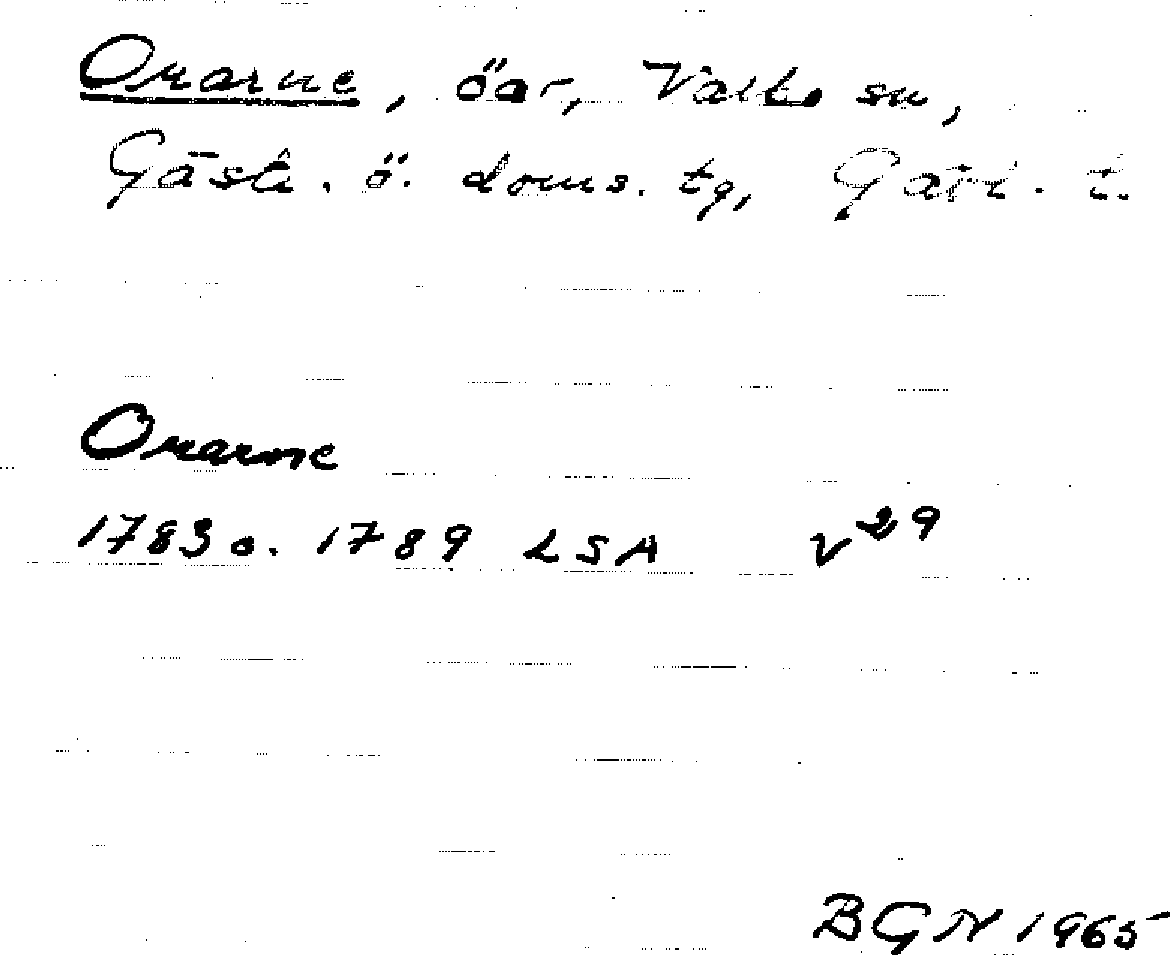 Orarne, öar, Valbo sn,
Gästr. ö. doms. tg, Gävl. l.
Orarne
1783 o. 1789 LSA V 29
BGN 1965